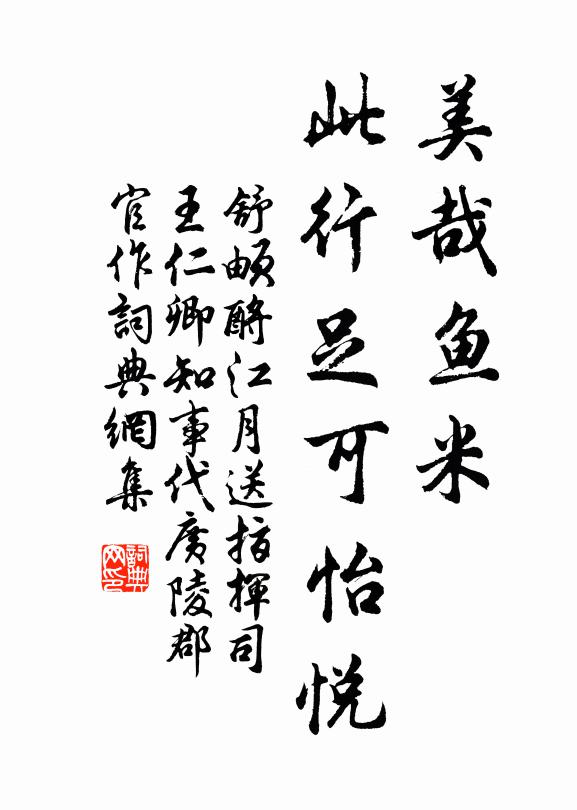 美哉鱼米
此行足可怡悦
舒頔酹江月送指揮司
王仁卿知事代廣陵郡
官作詞典網集
詞典
网印